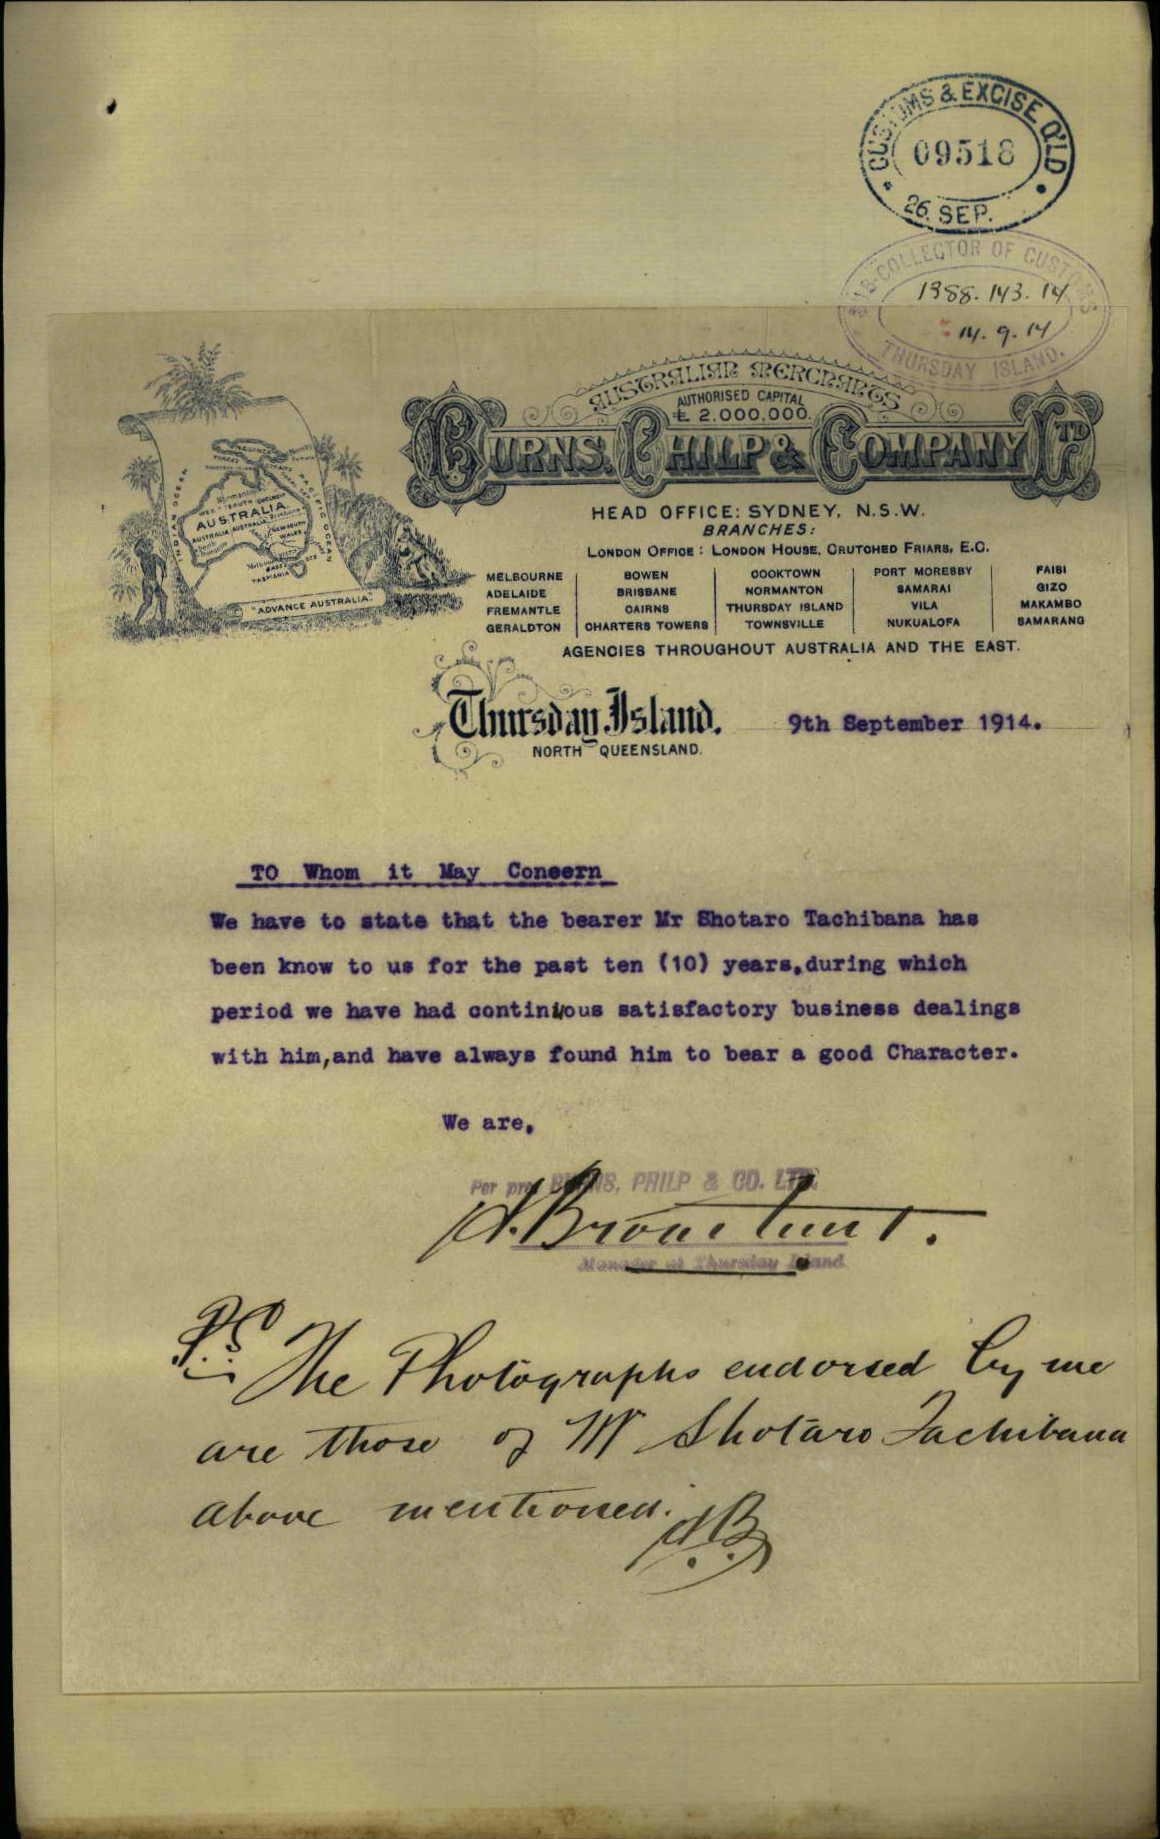 CUSTOMS & EXCISE Q'LD
09518
26. SEP.
SUB-COLLECTOR OF CUSTOMS
1388.143.14
14.9.14
THURSDAY ISLAND.
AUSTRALIAN MERCHANTS
AUTHORISED CAPITAL
£ 2.000.000.
BURNS, PHILP & COMPANY LTD
HEAD OFFICE: SYDNEY, N.S.W.
BRANCHES:
LONDON OFFICE: LONDON HOUSE, CRUTCHED FRIARS, E.C.
MELBOURNE BOWEN COOKTOWN PORT MORESBY FAISI
ADELAIDE BRISBANE NORMANTON SAMARAI GIZO
FREMANTLE CAIRNS THURSDAY ISLAND VILA MAKAMBO
GERALDTON CHARTERS TOWERS TOWNSVILLE NUKUALOFA SAMARANG
AGENCIES THROUGHOUT AUSTRALIA AND THE EAST.
INDIAN OCEAN
PACIFIC OCEAN
AUSTRALIA
TASMANIA
"ADVANCE AUSTRALIA"
Thursday Island. 9th September 1914.
NORTH QUEENSLAND.
TO Whom it May Concern
We have to state that the bearer Mr Shotaro Tachibana has
been know to us for the past ten (10) years, during which
period we have had continuous satisfactory business dealings
with him, and have always found him to bear a good Character.
We are,
Per pro BURNS, PHILP & CO. LTD.
Manager at Thursday Island
P.S. The Photographs endorsed by me
are those of Mr Shotaro Tachibana
above mentioned.